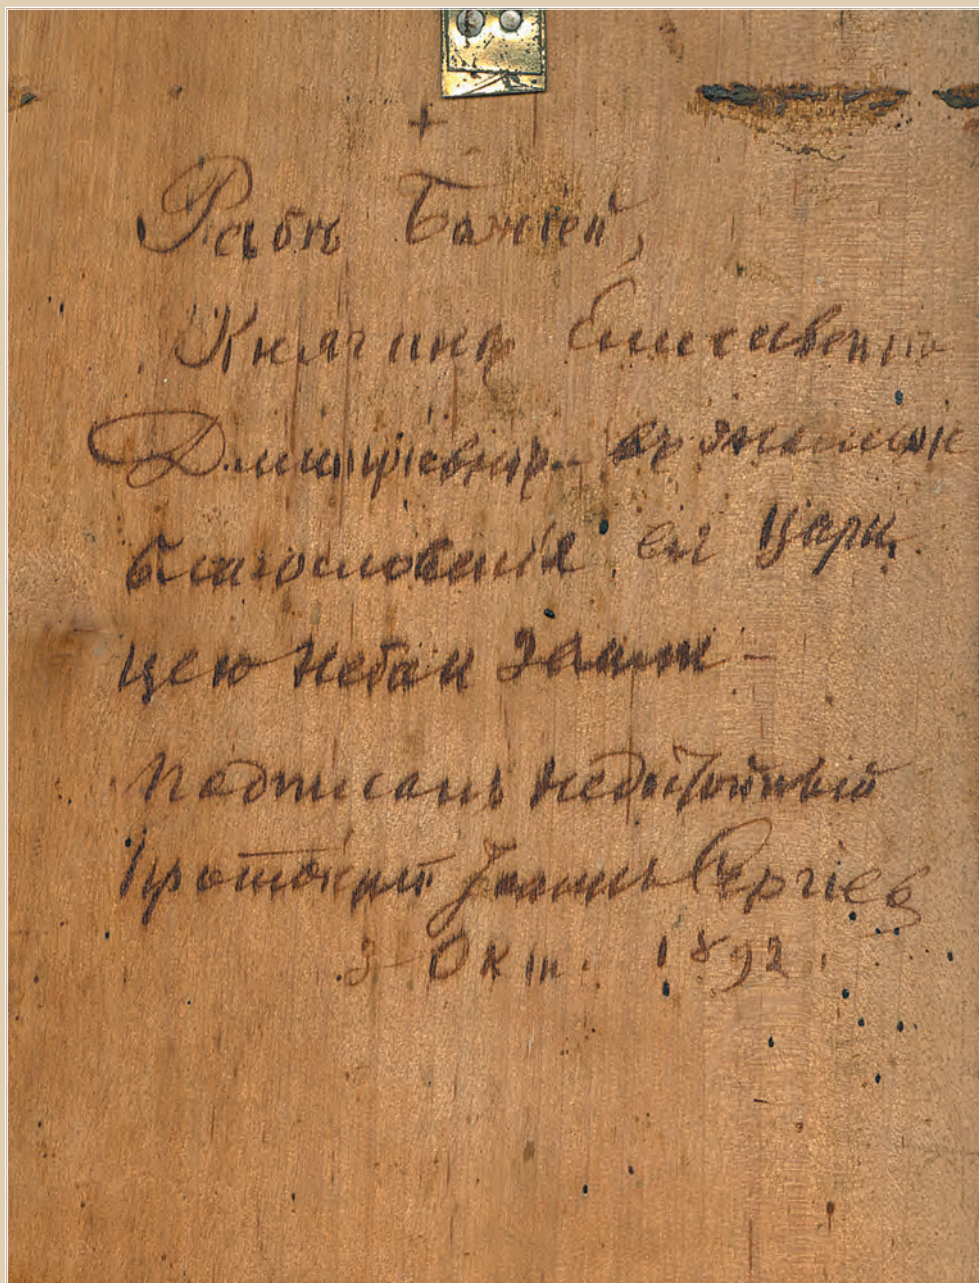 +
Рабѣ Божіей,
Княгинѣ Елисаветѣ
Димитріевнѣ въ знаменіе
благословенія ея Цари
цею Неба и Земли –
подписалъ недостойный
Протоіерей Іоаннъ Сергіев
3 Окт. 1892.